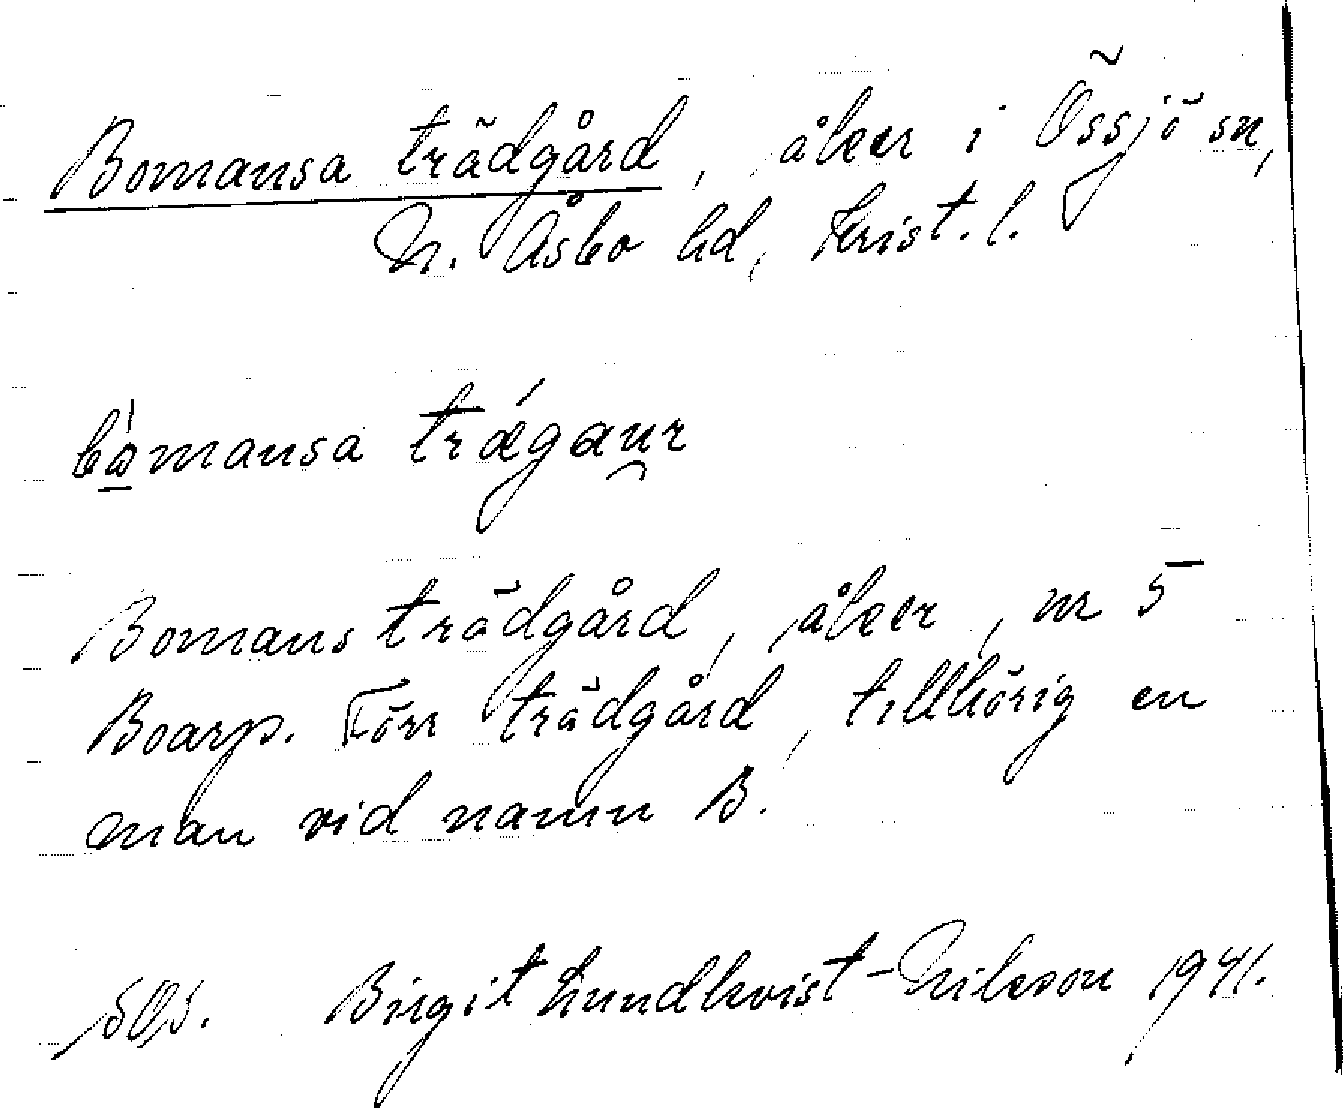 Bomansa trädgård, åker i Össjö sn,
N. Åsbo hd, Krist. l.
bòmansa trǽgau̯r
Bomans trädgård, åker, nr 5
Boarp. Förr trädgård, tillhörig en
man vid namn B.
Birgit Lundkvist-Nilsson 1941.